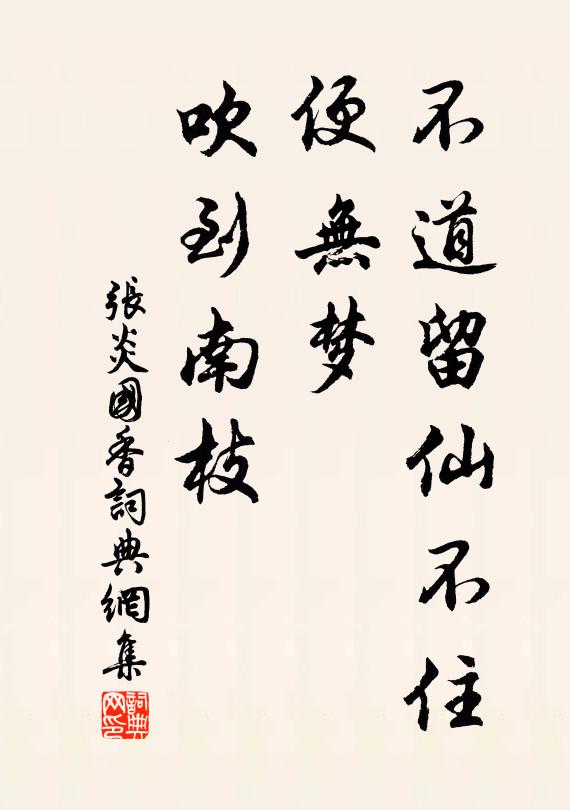 不道留仙不住
便無梦
吹到南枝
張炎國香詞典網集
詞典
网印